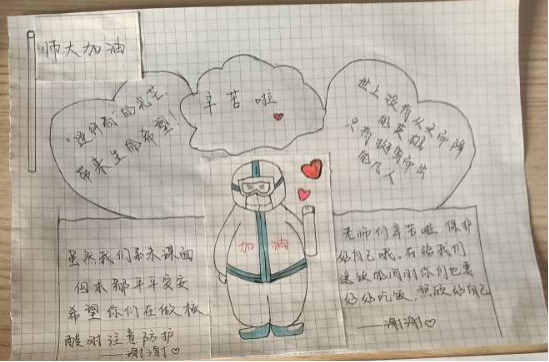 师大加油
“逆行者”的光芒，
带来生的希望！
辛苦啦
世上没有从天而降
的英雄
只有挺身而出
的凡人
加油
虽然我们素未谋面
但求都平平安安
希望你们在做核
酸时注意防护
——谢谢♡
老师们辛苦啦 保护
好自己哦，在给我们
送饭的同时你们也要
好好吃饭，照顾好自己
——谢谢♡